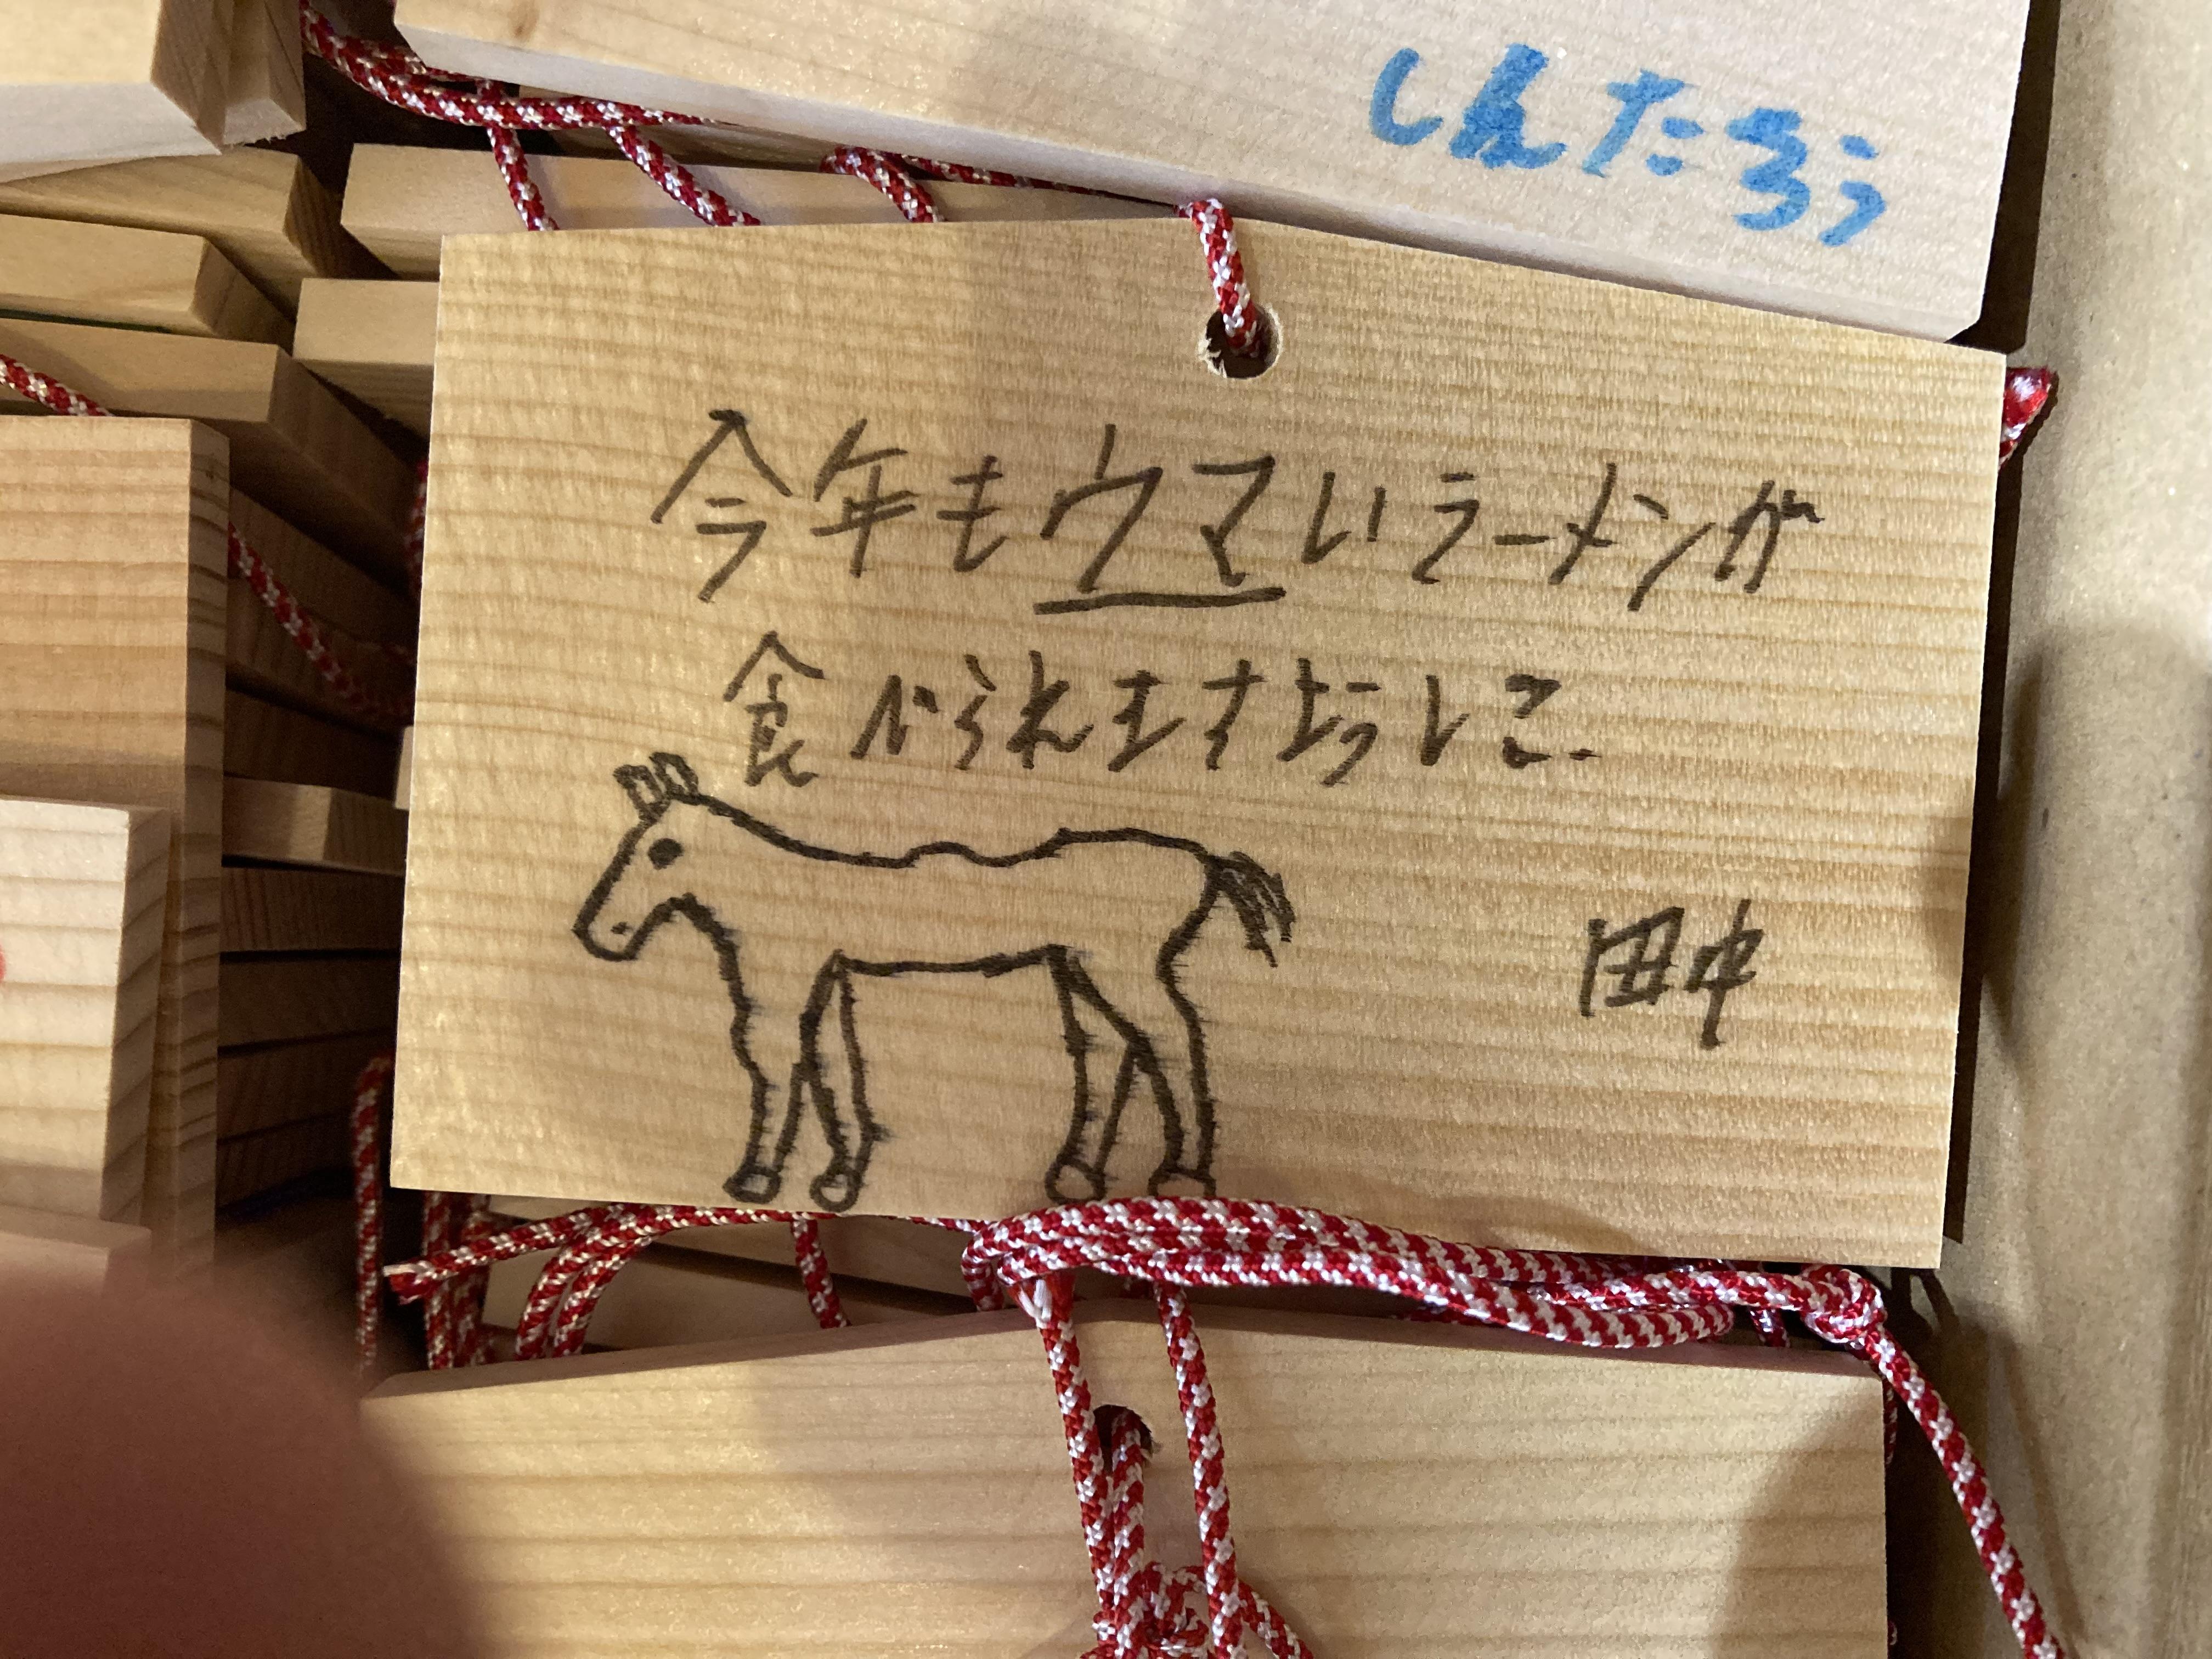 しんたろう
今年もウマいラーメンが
食べられますように.
田中